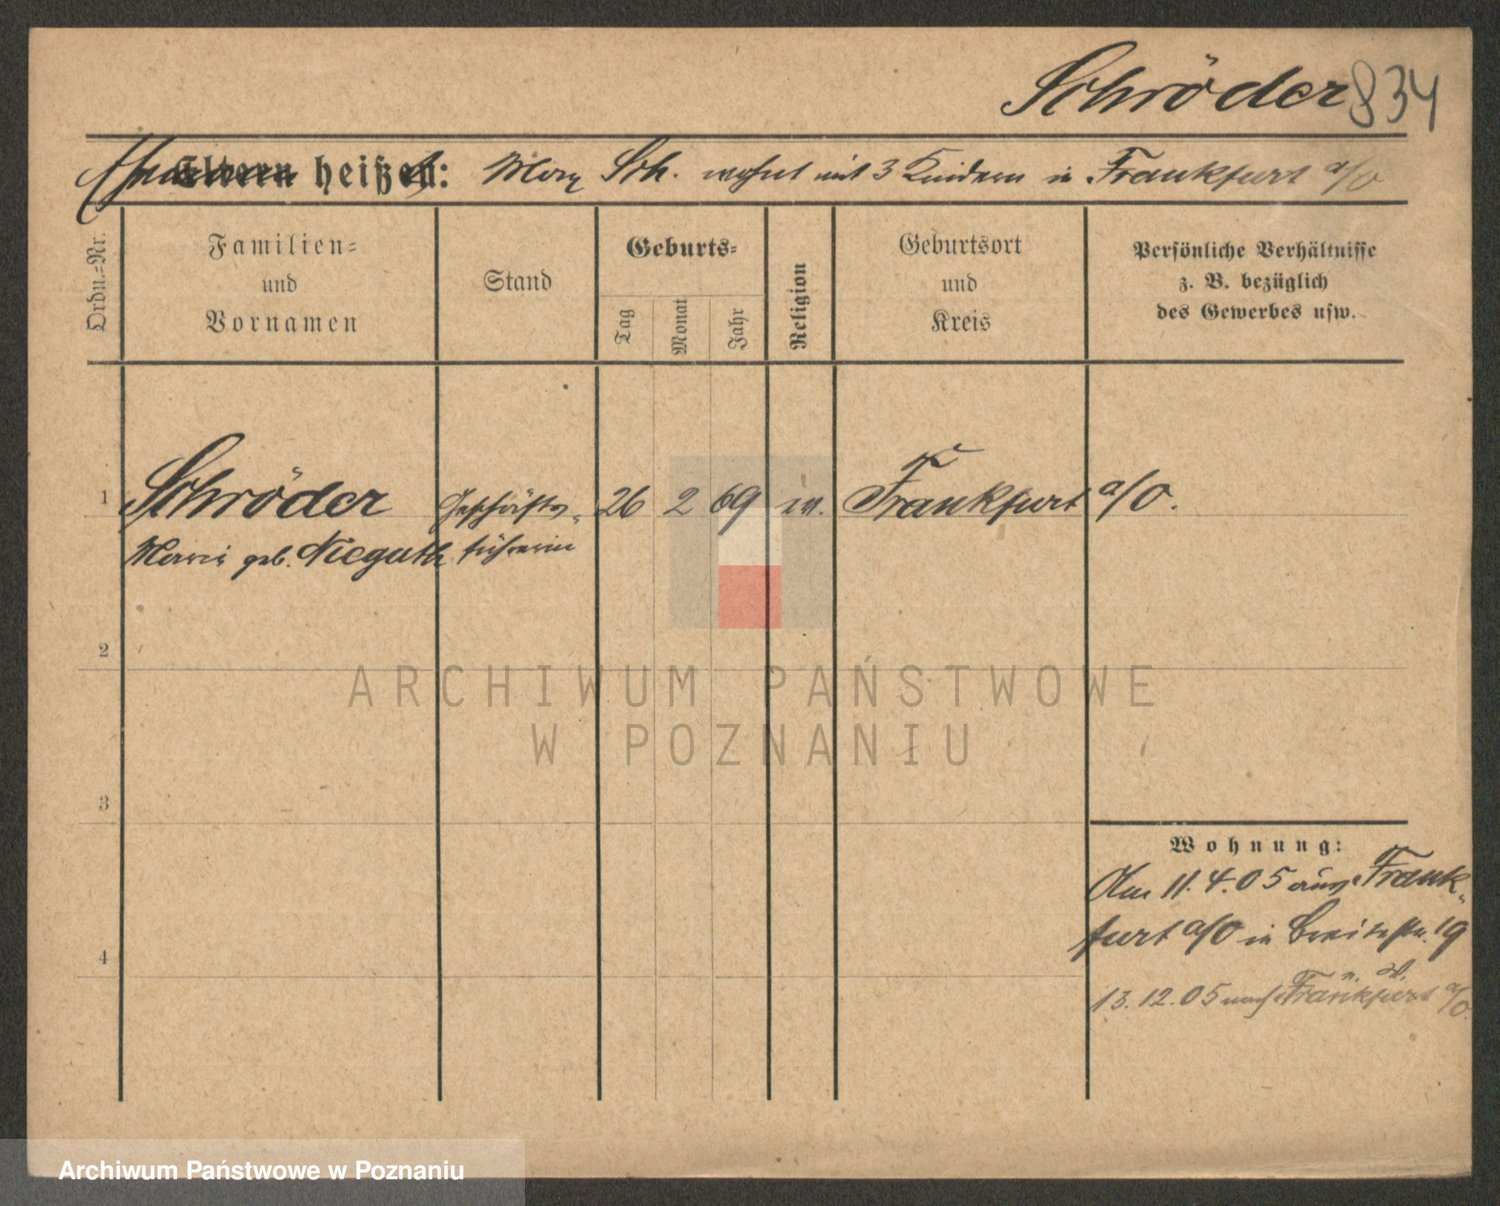 Schröder 834
Ehemann heißt: Max Sch. wohnt mit 3 Kindern in Frankfurt a/O
Ordn.=Nr.
Familien=
und
Vornamen
Stand
Geburts=
Tag
Monat
Jahr
Religion
Geburtsort
und
Kreis
Persönliche Verhältnisse
z. B. bezüglich
des Gewerbes usw.
1 Schröder Geschäfts- 26 2 69 ev. Frankfurt a/O.
Marie geb. Nieguth führerin
2
ARCHIWUM PAŃSTWOWE
W POZNANIU
3
Wohnung:
Am 11.4.05 aus Frank-
furt a/O in Breitestr. 19
4
13.12.05 nach Frankfurt a/O
Archiwum Państwowe w Poznaniu